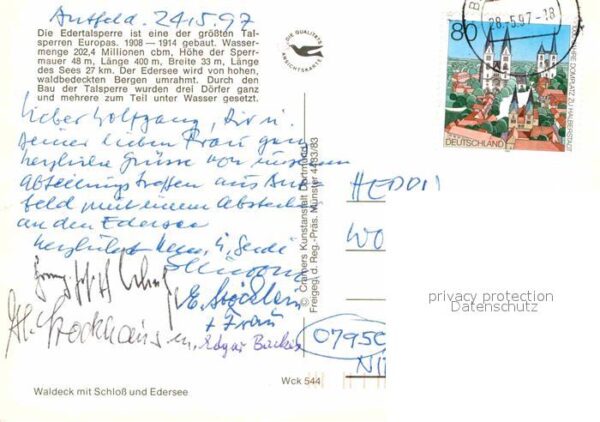 24.5.97
Die Edertalsperre ist eine der größten Tal-
sperren Europas. 1908 — 1914 gebaut. Wasser-
menge 202,4 Millionen cbm, Höhe der Sperr-
mauer 48 m, Länge 400 m, Breite 33 m, Länge
des Sees 27 km. Der Edersee wird von hohen,
waldbedeckten Bergen umrahmt. Durch den
Bau der Talsperre wurden drei Dörfer ganz
und mehrere zum Teil unter Wasser gesetzt.
Lieber Wolfgang, Dir u.
Deiner lieben Frau ganz
herzliche Grüsse von unserem
Abteilungstreffen aus
feld mit einem Abstecher
an den Edersee
+ Frau
H. Stockhausen, Edgar
Waldeck mit Schloß und Edersee
Wck 544
DIE QUALITÄTS
ANSICHTSKARTE
© Cramers Kunstanstalt Dortmund
Freigegl. d. Reg.-Präs. Münster 4483/83
28.5.97-18
80
DOMPLATZ ZU HALBERSTADT
DEUTSCHLAND
WO
privacy protection
Datenschutz
0795